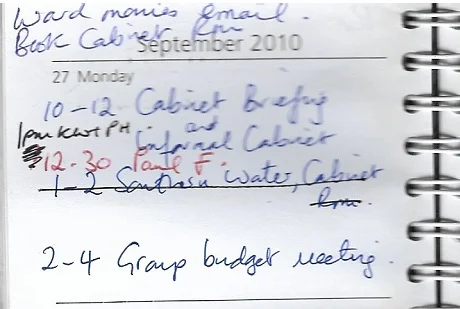 Ward monies email.
Book Cabinet Rm
September 2010
27 Monday
10-12 Cabinet Briefing
and
1pm Kent PH Informal Cabinet
12.30 Paul F.
1-2 Southern Water, Cabinet
Rm.
2-4 Group budget meeting.